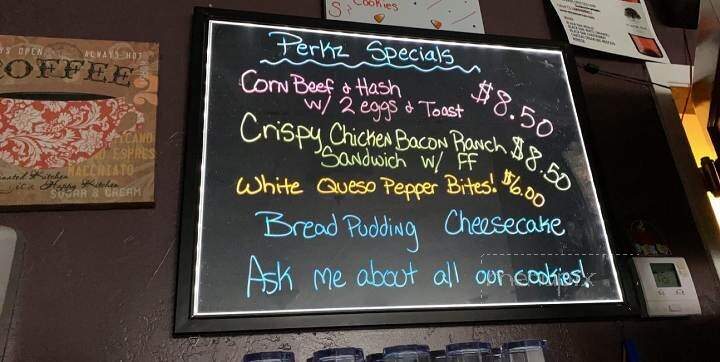 Cookies
Perkz Specials
Corn Beef & Hash
w/ 2 eggs & Toast $8.50
Crispy Chicken Bacon Ranch $8.50
Sandwich w/ FF
White Queso Pepper Bites! $6.00
Bread Pudding Cheesecake
Ask me about all our cookies!
OPEN ALWAYS HOT
OFFEE
MACCHIATO
Happy Kitchen
SUGAR & CREAM